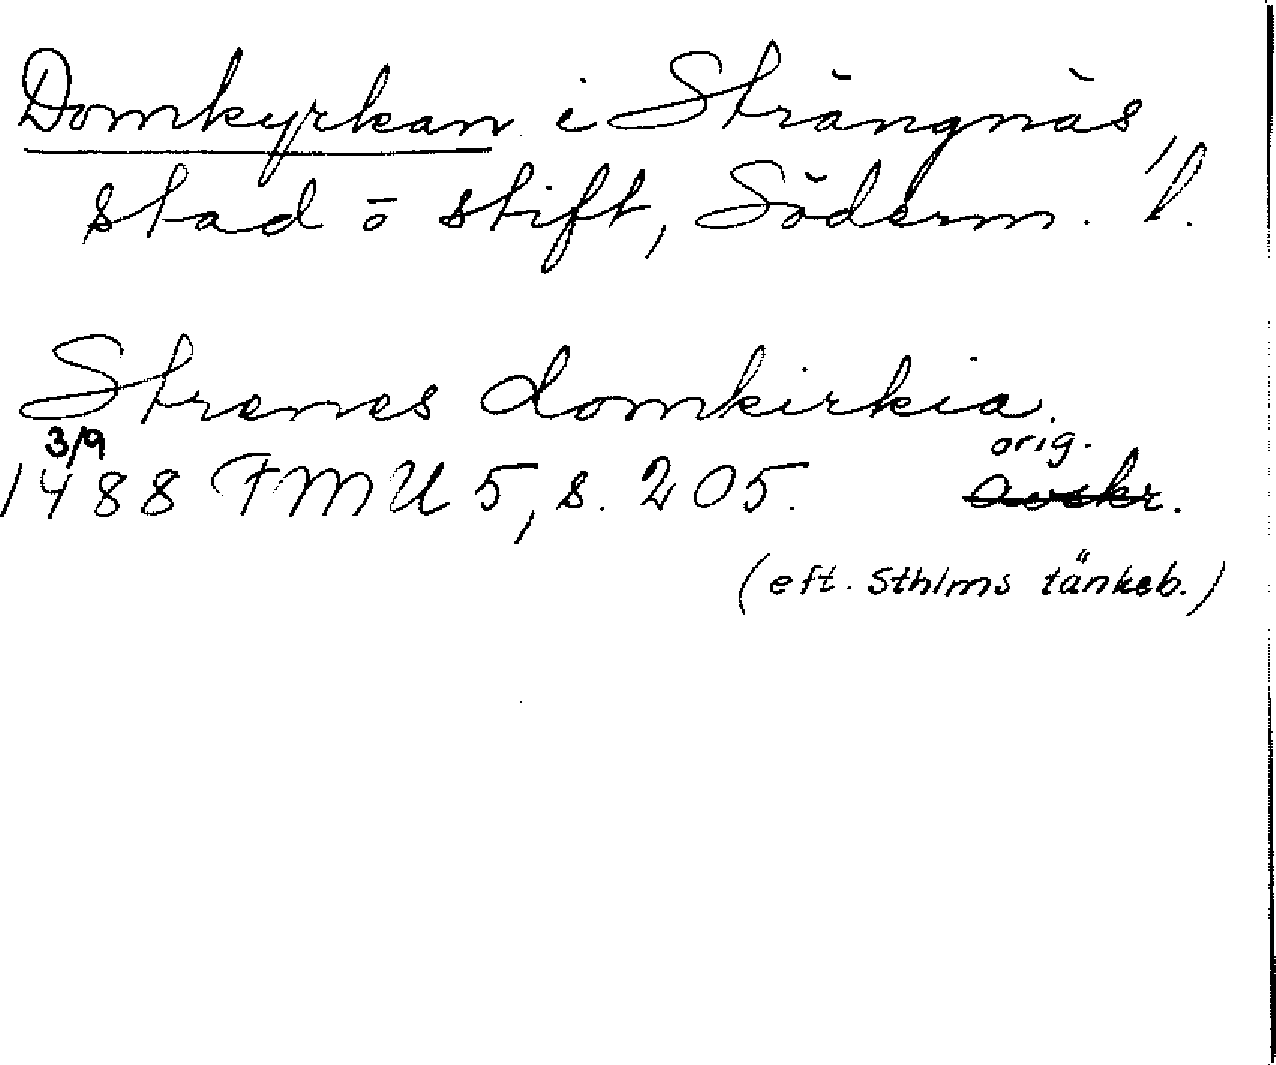 Domkyrkan i Strängnäs,
stad o stift, Söderm. l.
Strenes domkirkia.
3/9
orig.
1488 FMU 5, s. 205. avskr.
(eft. Sthlms tänkeb.)